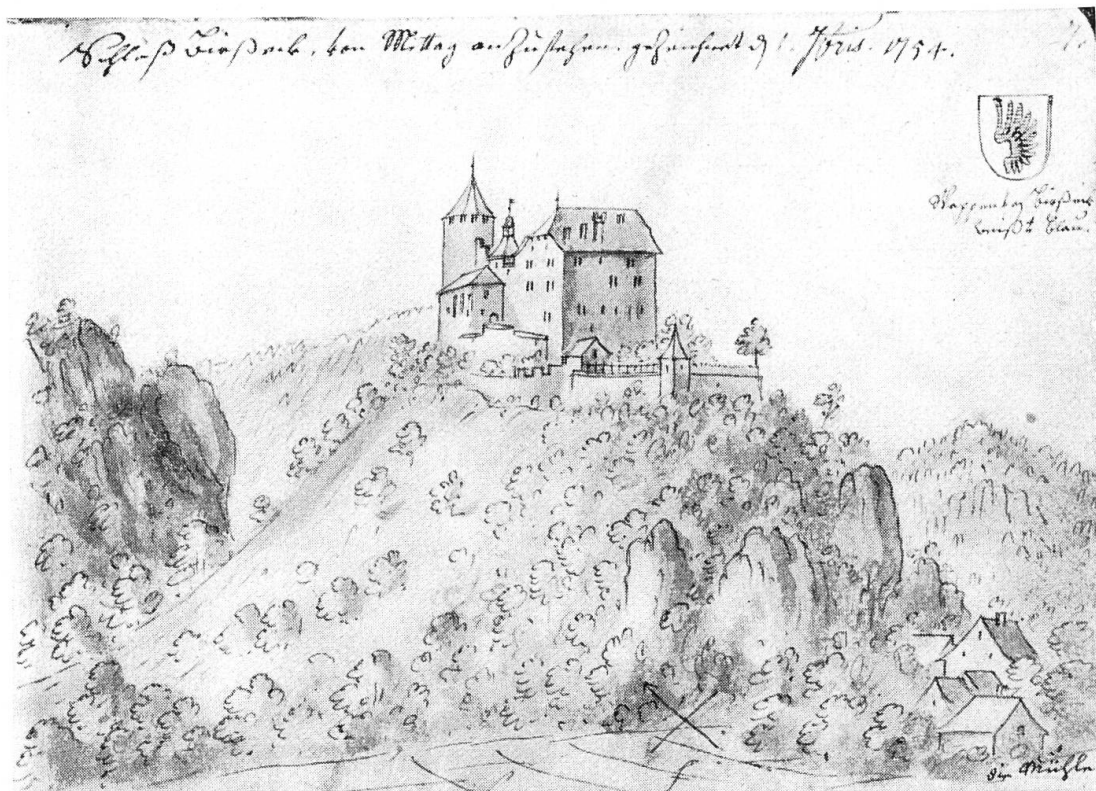 Schloß Birßeck, von Mittag anzusehen. gezeichnet d. 1. 7bris. 1754.
Wappen des Birßeck
weiß & blau.
die Mühle